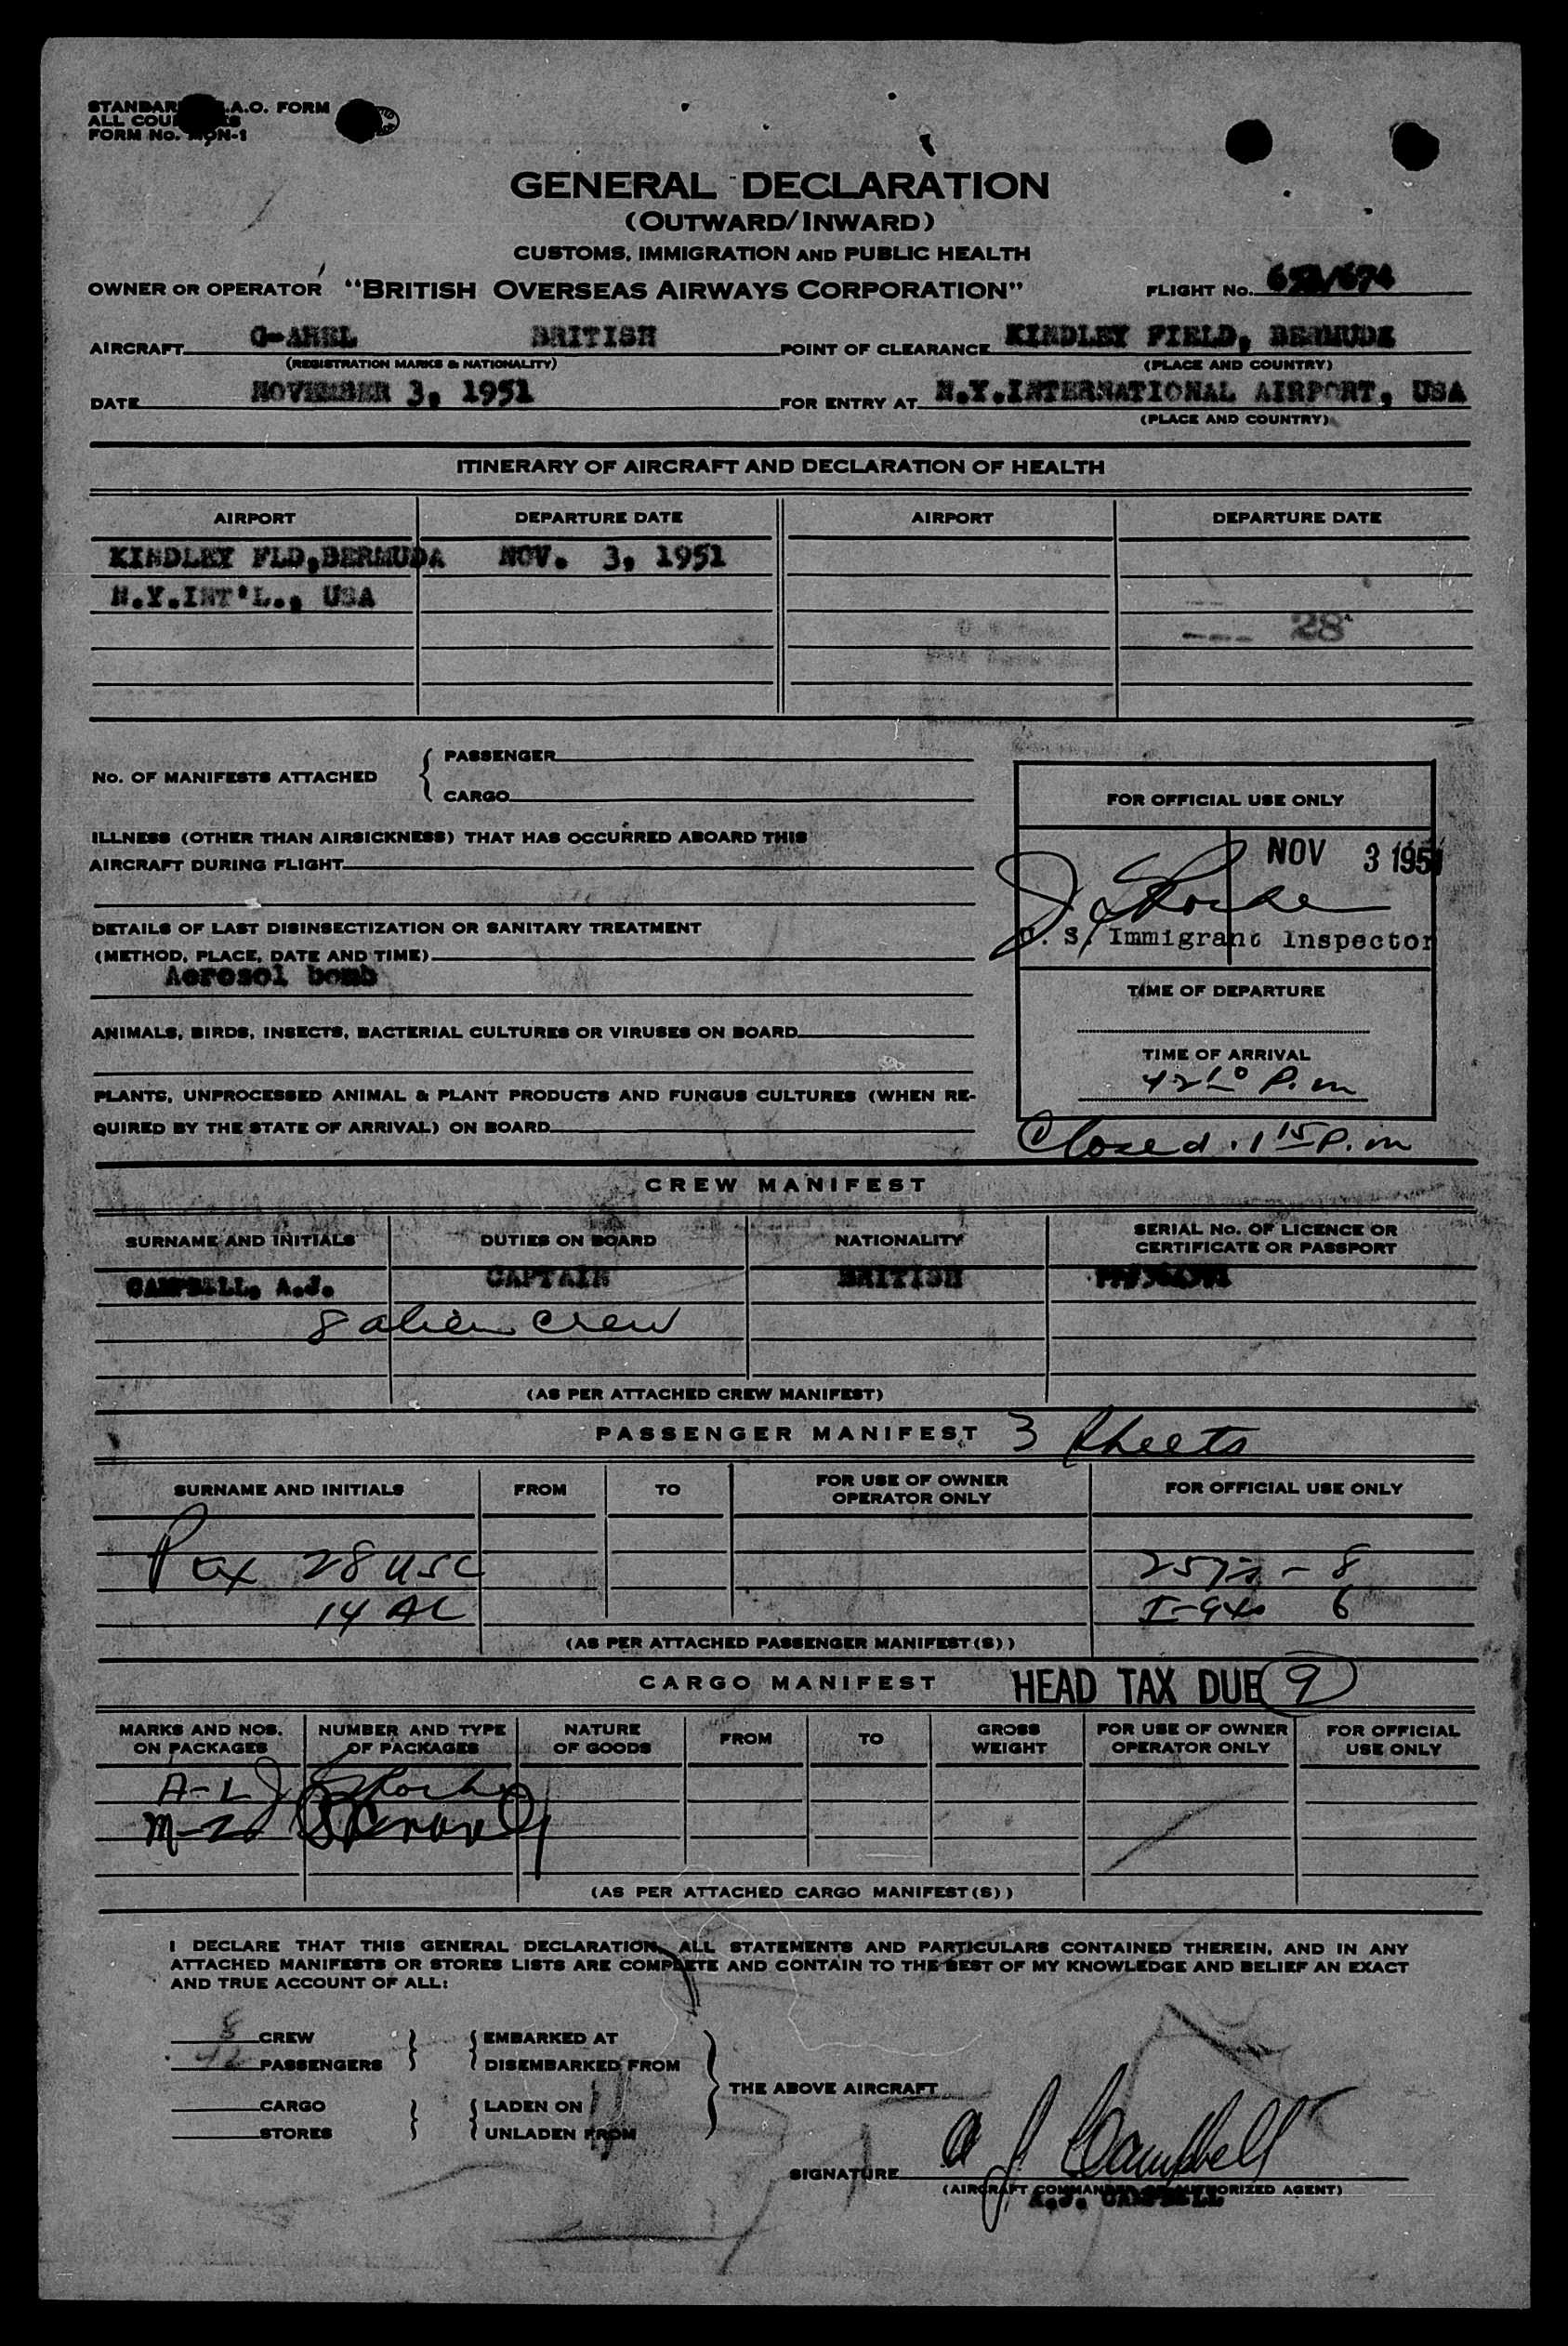 STANDARD I.C.A.O. FORM
ALL COUNTRIES
FORM No. MON-1
GENERAL DECLARATION
(OUTWARD/INWARD)
CUSTOMS, IMMIGRATION AND PUBLIC HEALTH
OWNER OR OPERATOR "BRITISH OVERSEAS AIRWAYS CORPORATION" FLIGHT No.
AIRCRAFT BRITISH POINT OF CLEARANCE KINDLEY FIELD, BERMUDA
(REGISTRATION MARKS & NATIONALITY) (PLACE AND COUNTRY)
DATE NOVEMBER 3, 1951 FOR ENTRY AT N.Y.INTERNATIONAL AIRPORT, USA
(PLACE AND COUNTRY)
ITINERARY OF AIRCRAFT AND DECLARATION OF HEALTH
AIRPORT DEPARTURE DATE AIRPORT DEPARTURE DATE
KINDLEY FLD,BERMUDA NOV. 3, 1951
N.Y.INT'L., USA
28
PASSENGER
No. OF MANIFESTS ATTACHED
CARGO
FOR OFFICIAL USE ONLY
ILLNESS (OTHER THAN AIRSICKNESS) THAT HAS OCCURRED ABOARD THIS
AIRCRAFT DURING FLIGHT
NOV 3 1951
DETAILS OF LAST DISINSECTIZATION OR SANITARY TREATMENT
U. S. Immigrant Inspector
(METHOD, PLACE, DATE AND TIME)
Aerosol bomb
TIME OF DEPARTURE
ANIMALS, BIRDS, INSECTS, BACTERIAL CULTURES OR VIRUSES ON BOARD
TIME OF ARRIVAL
P.m
PLANTS, UNPROCESSED ANIMAL & PLANT PRODUCTS AND FUNGUS CULTURES (WHEN RE-
QUIRED BY THE STATE OF ARRIVAL) ON BOARD
Closed. 1 15 P.m
CREW MANIFEST
SURNAME AND INITIALS DUTIES ON BOARD NATIONALITY SERIAL No. OF LICENCE OR
CERTIFICATE OR PASSPORT
CAMPBELL, A.J. CAPTAIN BRITISH
8 alien crew
(AS PER ATTACHED CREW MANIFEST)
PASSENGER MANIFEST 3 Sheets
SURNAME AND INITIALS FROM TO FOR USE OF OWNER
OPERATOR ONLY FOR OFFICIAL USE ONLY
Pax 28 USC 257 - 8
14 AL 6
(AS PER ATTACHED PASSENGER MANIFEST(S))
CARGO MANIFEST HEAD TAX DUE 9
MARKS AND NOS.
ON PACKAGES NUMBER AND TYPE
OF PACKAGES NATURE
OF GOODS FROM TO GROSS
WEIGHT FOR USE OF OWNER
OPERATOR ONLY FOR OFFICIAL
USE ONLY
A-L
M-2
(AS PER ATTACHED CARGO MANIFEST(S))
I DECLARE THAT THIS GENERAL DECLARATION, ALL STATEMENTS AND PARTICULARS CONTAINED THEREIN, AND IN ANY
ATTACHED MANIFESTS OR STORES LISTS ARE COMPLETE AND CONTAIN TO THE BEST OF MY KNOWLEDGE AND BELIEF AN EXACT
AND TRUE ACCOUNT OF ALL:
8 CREW EMBARKED AT
42 PASSENGERS DISEMBARKED FROM
THE ABOVE AIRCRAFT
CARGO LADEN ON
STORES UNLADEN FROM
SIGNATURE A J Campbell
(AIRCRAFT COMMANDER OR AUTHORIZED AGENT)
A.J. CAMPBELL